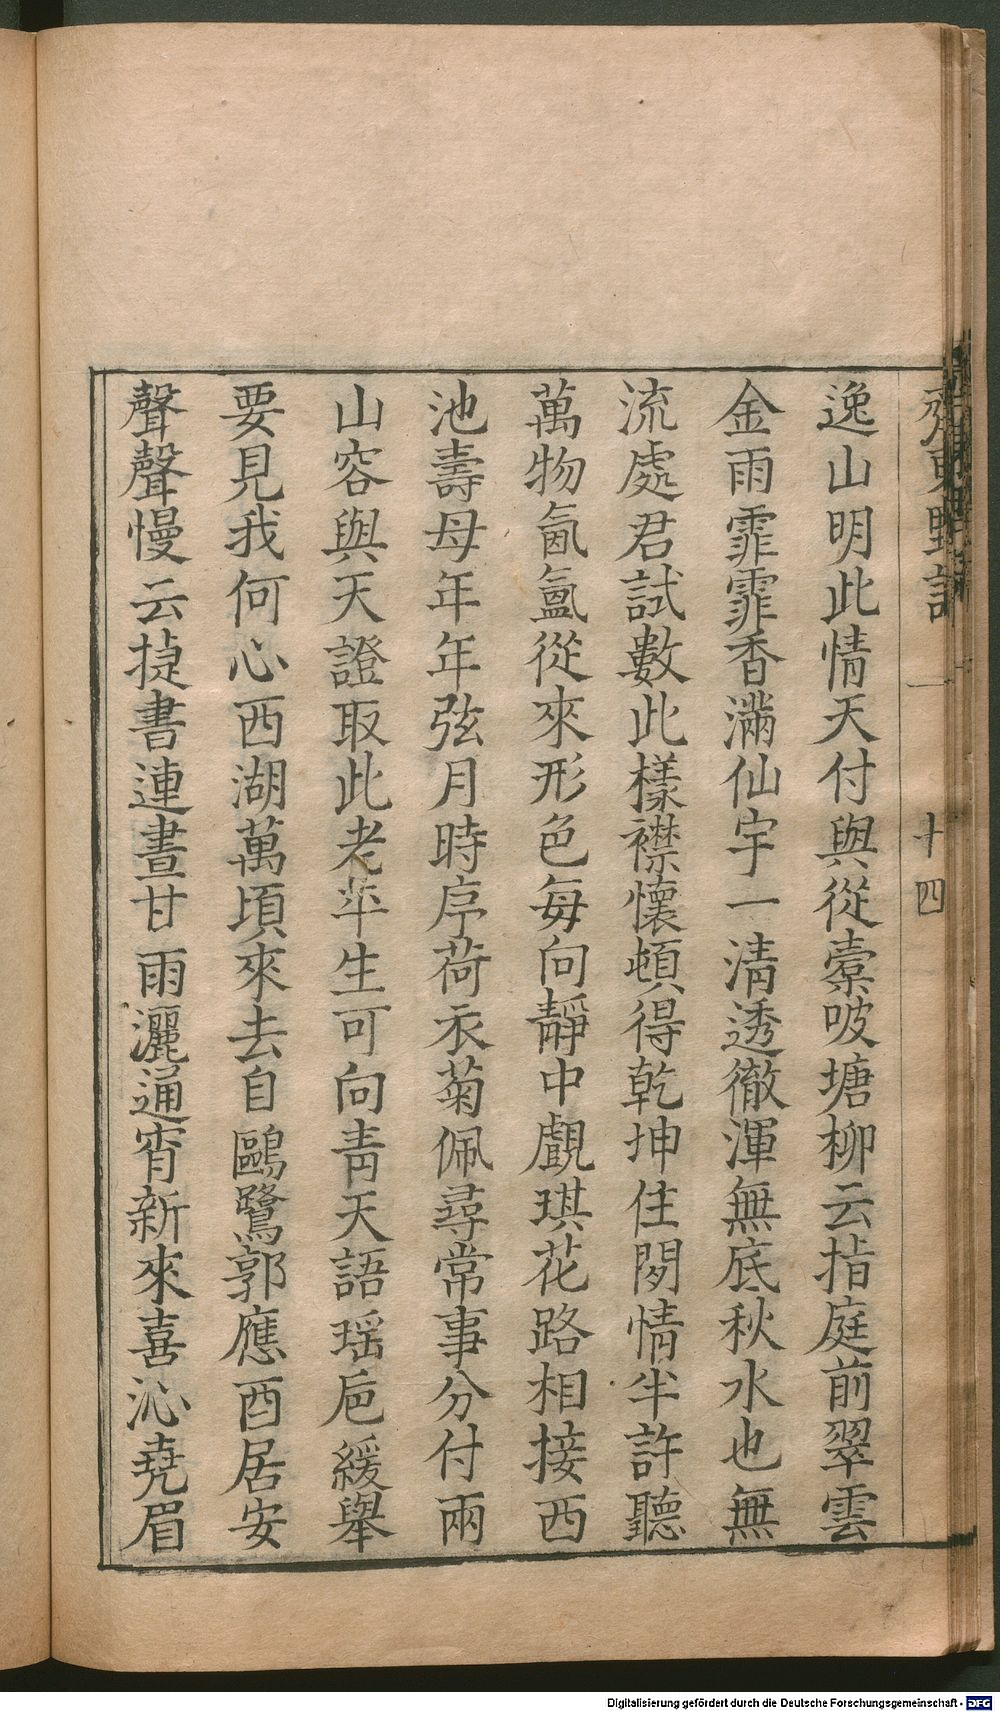 逸山明此情天付與從橐吸塘柳云指庭前翠雲
金雨霏霏香滿仙宇一清透徹渾無底秋水也無
流處君試數此樣襟懷頓得乾坤住閑情半許聽
萬物氤氳從來形色每向靜中覷琪花路相接西
池壽母年年弦月時序荷衣菊佩尋常事分付兩
山容與天證取此老平生可向青天語瑤巵緩舉
要見我何心西湖萬頃來去自鷗鷺郭應酉居安
聲聲慢云捷書連晝甘雨灑通宵新來喜沁堯眉
十四
Digitalisierung gefördert durch die Deutsche Forschungsgemeinschaft - DFG